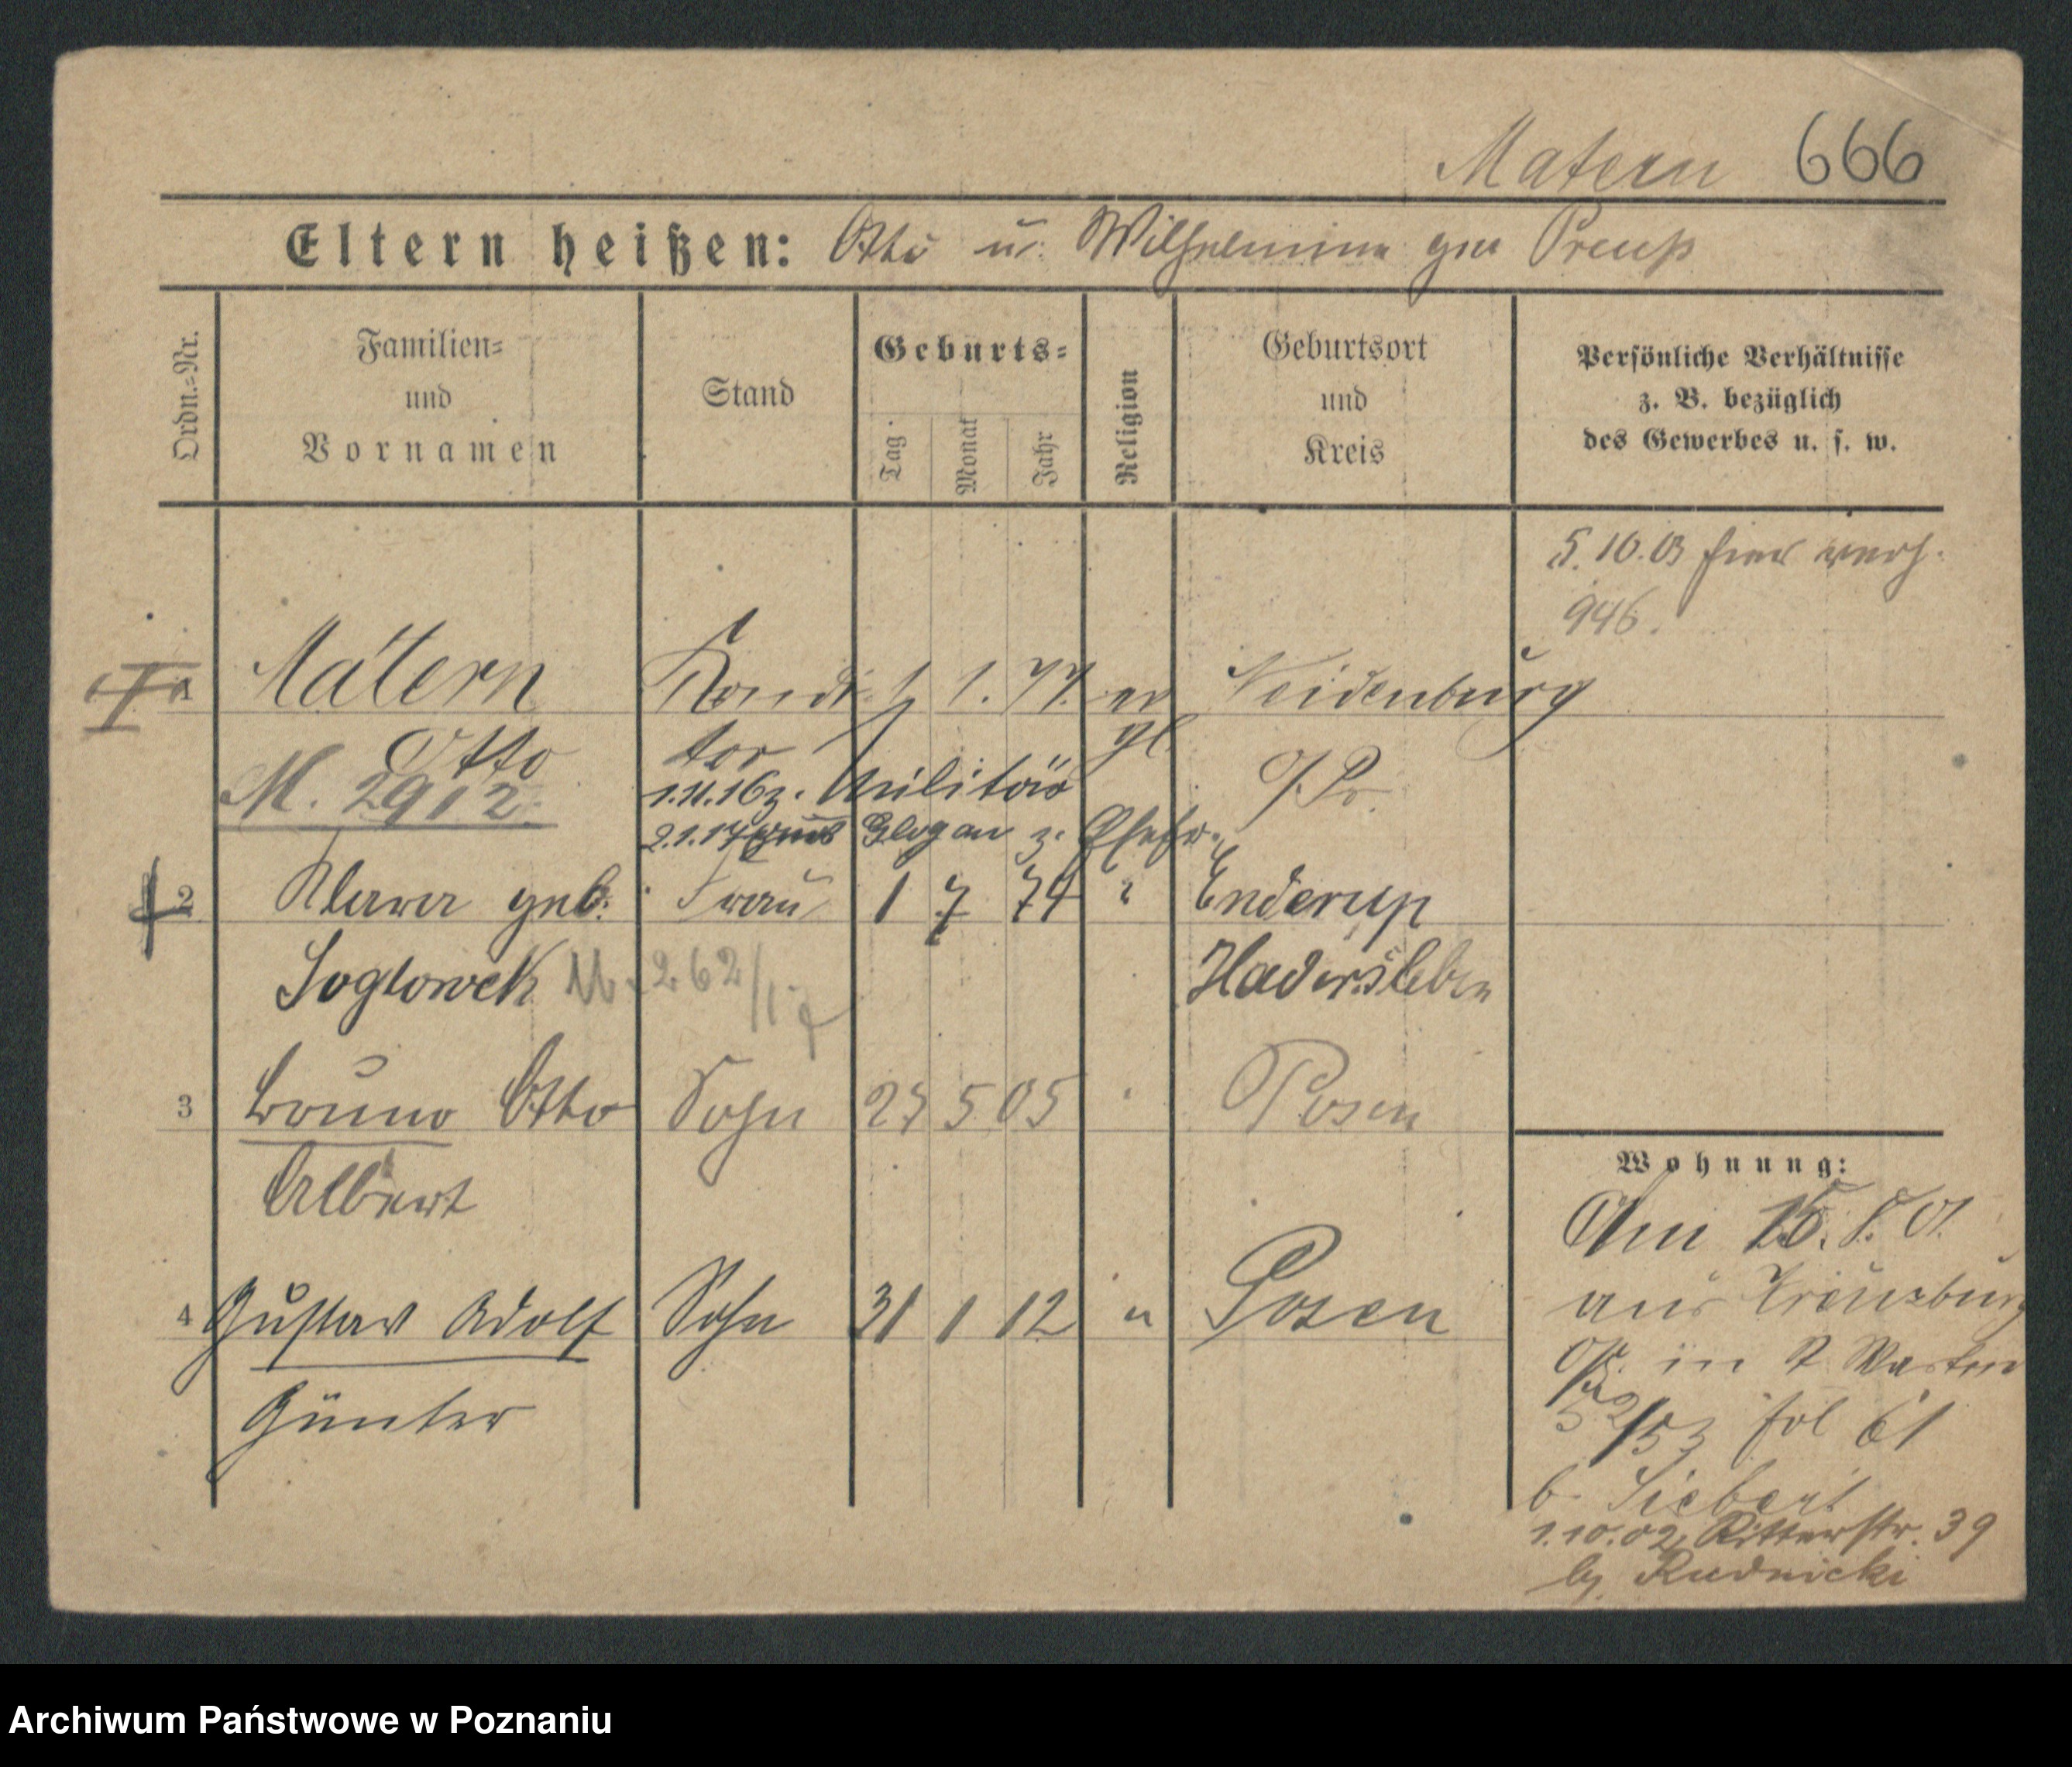 Matern 666
Eltern heißen: Otto u. Wilhelmine geb Preuß
Ordn.=Nr.
Familien=
und
Vornamen
Stand
Geburts=
Tag
Monat
Jahr
Religion
Geburtsort
und
Kreis
Persönliche Verhältnisse
z. B. bezüglich
des Gewerbes u. s. w.
5.10.03 hier verh.
946.
1 Matern Kondi 1. 77. ev Neidenburg
Otto tor gl. O/Pr.
M. 2912. 1.11.16 z. Militär
2.1.17 Glogau z. Ehefr.
2 Klara geb. Frau 1 7 74 " Enderup
Soglowek M. 262/17 Hadersleben
3 Bruno Otto Sohn 5 05 " Posen
Albert
4 Gustav Adolf Sohn 31 1 12 " Posen
Günter
Wohnung:
Am 15. 8. 01.
aus Kreuzburg
in St Martin
52/53 fol 61
b Siebert
1.10.02 Ritterstr. 39
by Rudnicki
Archiwum Państwowe w Poznaniu